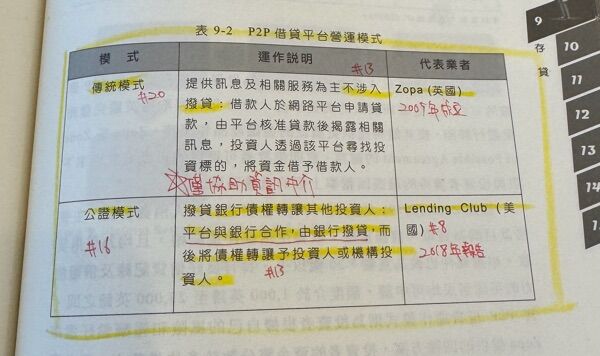 表 9-2 P2P 借貸平台營運模式
模式 運作說明 代表業者
傳統模式
#20
提供訊息及相關服務為主不涉入
#13
撥貸：借款人於網路平台申請貸
款，由平台核准貸款後揭露相關
訊息，投資人透過該平台尋找投
資標的，將資金借予借款人。
僅協助資訊中介
Zopa (英國)
公證模式
#16
撥貸銀行債權轉讓其他投資人：
平台與銀行合作，由銀行撥貸，而
後將債權轉讓予投資人或機構投
資人。
#13
Lending Club (美
國) #8
2018年報告
9
存
貸
10
11
12
13
14